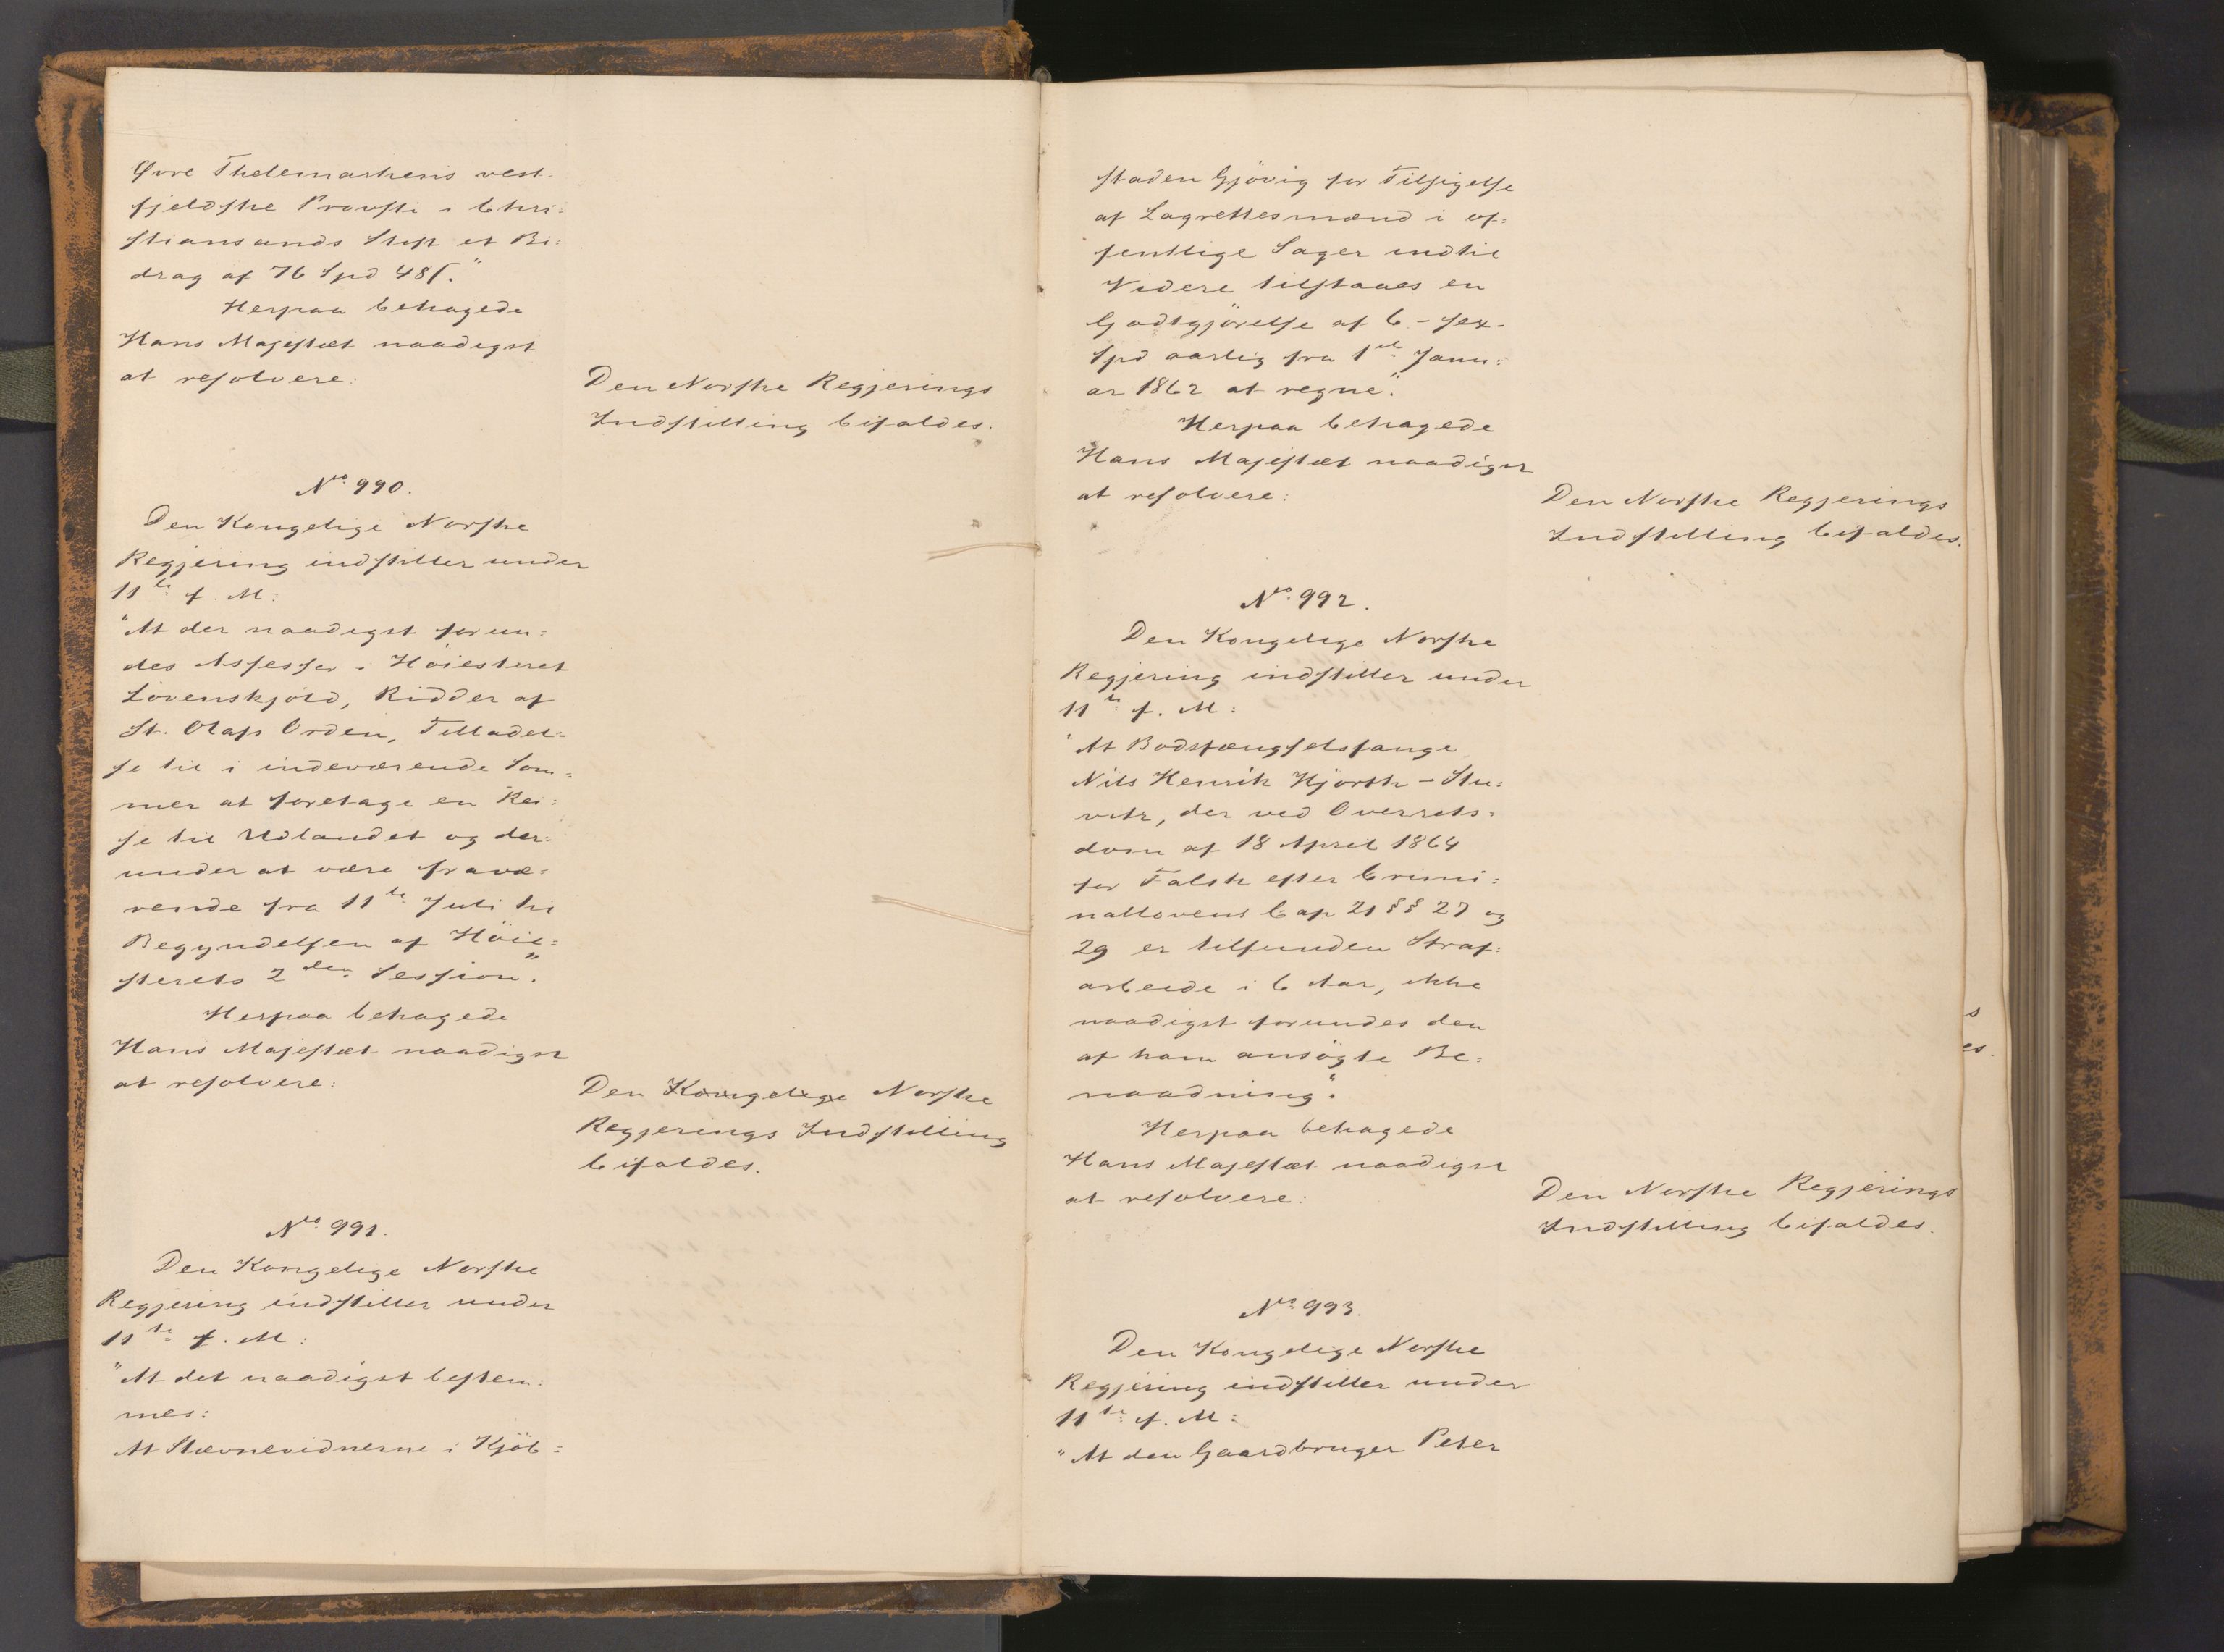 Øvre Thelemarkens vest-
fjeldske Provsti i Chri=
stiansands Stift et Bi=
drag af 76 Spd 48 ſ."
Herpaa behagede
Hans Majestæt naadigst
at resolvere:
Den Norske Regjerings
Indstilling bifaldes.
No. 990.
Den Kongelige Norske
Regjering indstiller under
11te f. M:
"At der naadigst forun=
des Assessor i Høiesteret
Løvenskjold, Ridder af
St. Olafs Orden, Tilladel=
se til i indeværende Som=
mer at foretage en Rei=
se til Udlandet og der=
under at være fravæ=
rende fra 11te Juli til
Begyndelsen af Høie=
sterets 2den Session."
Herpaa behagede
Hans Majestæt naadigst
at resolvere:
Den Kongelige Norske
Regjerings Indstilling
bifaldes.
No. 991.
Den Kongelige Norske
Regjering indstiller under
11te f. M:
"At det naadigst bestem=
mes:
At Stævnevidnerne i Kjöb=
staden Gjövig for Tilsigelse
af Lagrettesmænd i of=
fentlige Sager indtil
Videre tilstaaes en
Godtgjörelse af 6 - sex -
Spd aarlig fra 1ste Janu=
ar 1862 at regne."
Herpaa behagede
Hans Majestæt naadigst
at resolvere:
Den Norske Regjerings
Indstilling bifaldes.
No. 992.
Den Kongelige Norske
Regjering indstiller under
11te f. M:
"At Bodsfængselsfange
Nils Henrik Hjorth - Stu=
vitz, der ved Overrets=
dom af 18 April 1864
for Falsk efter Crimi=
nallovens Cap 21 §§ 27 og
29 er tilfunden Straf=
arbeide i 6 Aar, ikke
naadigst forundes den
af ham ansøgte Be=
naadning."
Herpaa behagede
Hans Majestæt naadigst
at resolvere:
Den Norske Regjerings
Indstilling bifaldes.
No. 993.
Den Kongelige Norske
Regjering indstiller under
11te f. M:
"At den Gaardbruger Peter